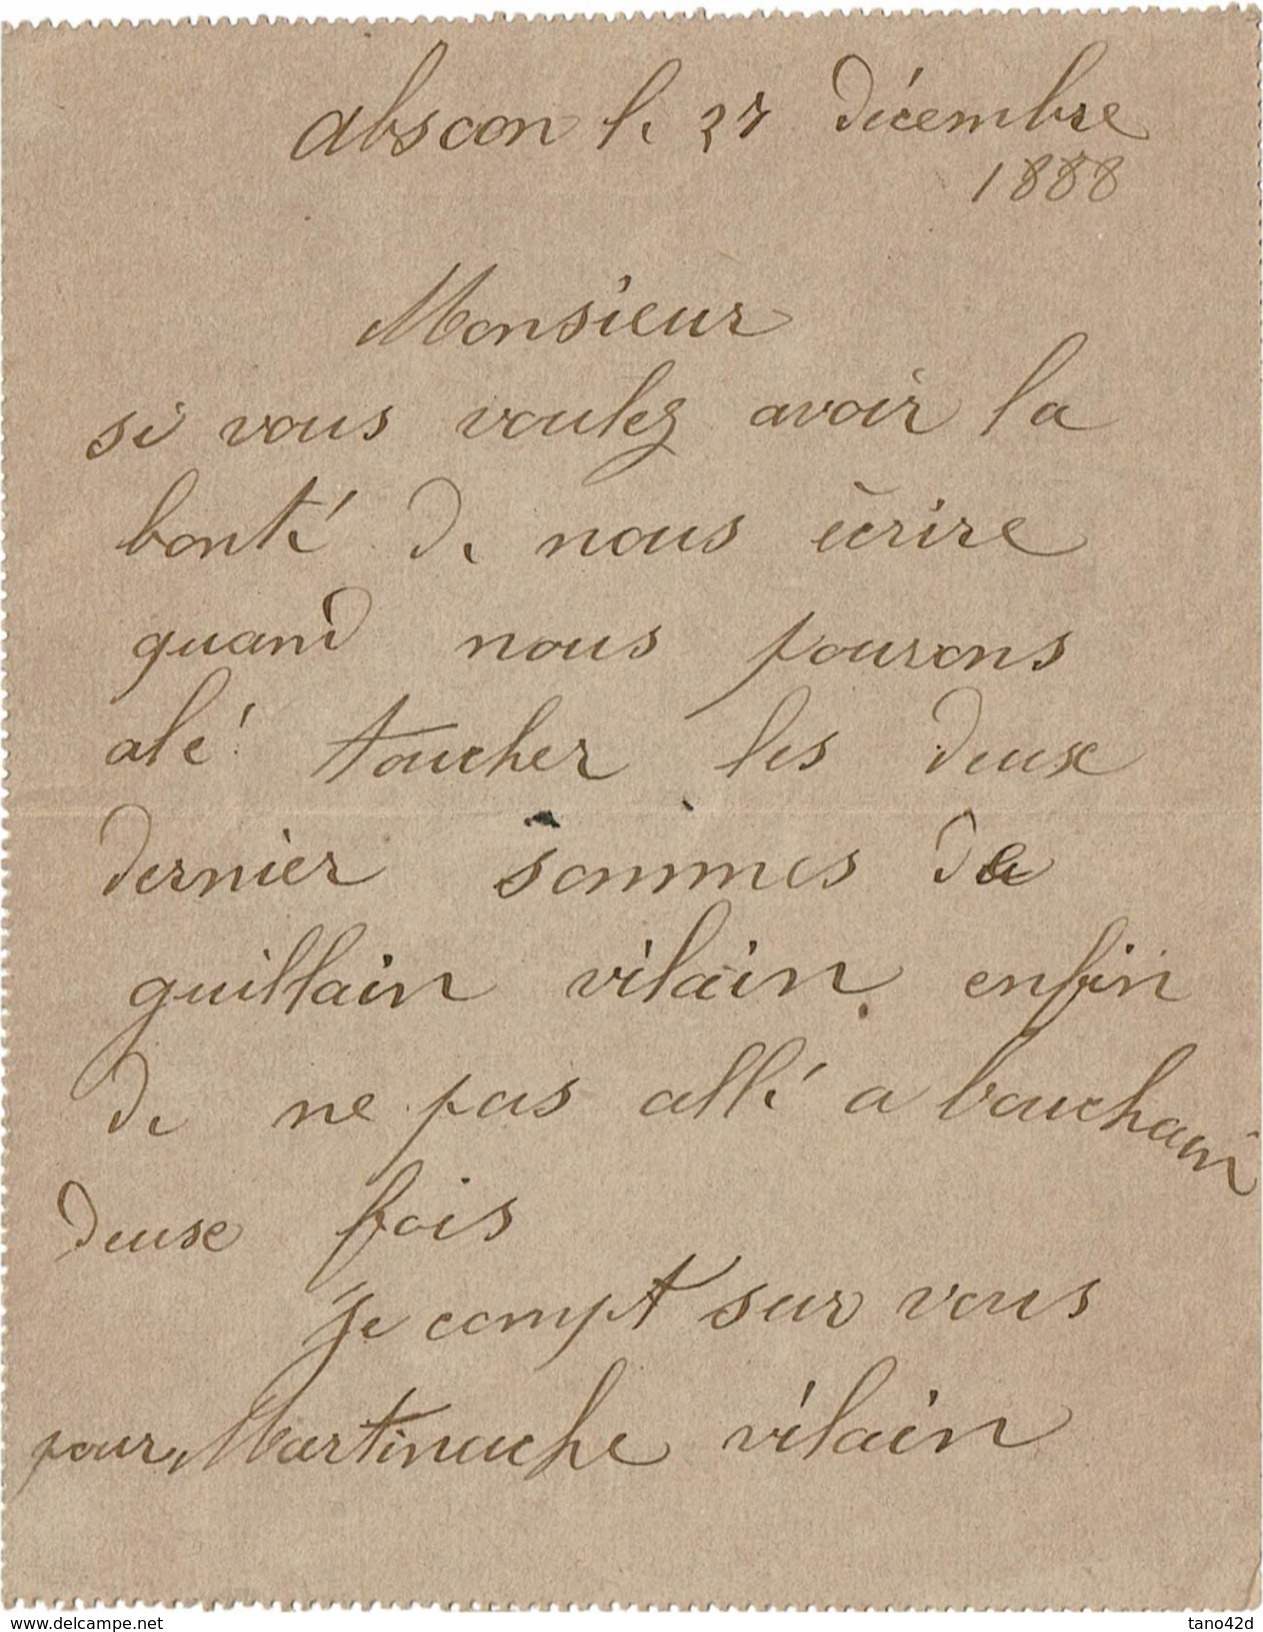 abscon le 27 décembre
1888
Monsieur
si vous voulez avoir la
bonté de nous ècrire
quand nous pourons
alé toucher les deux
dernier sommes de
guillain vilain enfin
de ne pas allé a bouchain
deuse fois
je compt sur vous
pour Martinache vilain
www.delcampe.net
tano42d